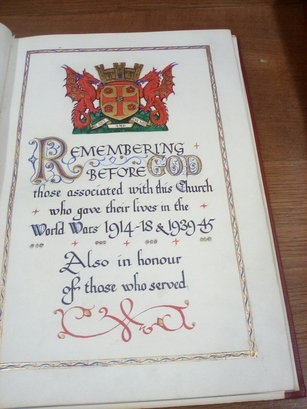 REMEMBERING
BEFORE GOD
those associated with this Church
who gave their lives in the
World Wars 1914-18 & 1939-45
Also in honour
of those who served